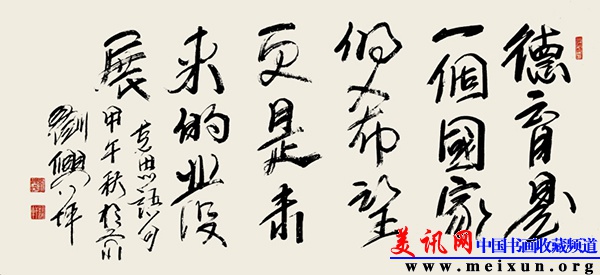 德育是
一個國家
希望
更是未
来的
展
甲午秋於
劉興坪
美讯网 中国书画收藏频道
www.meixun.org